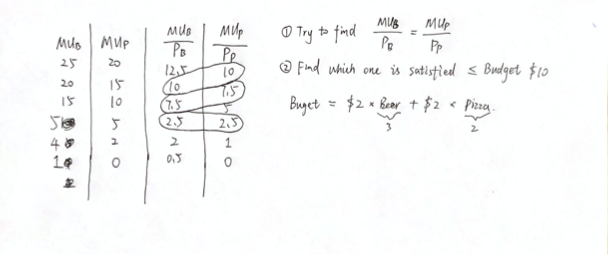 MUB MUP MUB/PB MUP/PP
25 20 12.5 10
20 15 10 7.5
15 10 7.5 5
5 5 2.5 2.5
4 2 2 1
1 0 0.5 0
① Try to find MUB/PB = MUP/PP
② Find which one is satisfied ≤ Budget $10
Buget = $2 × Beer + $2 × Pizza.
3 2